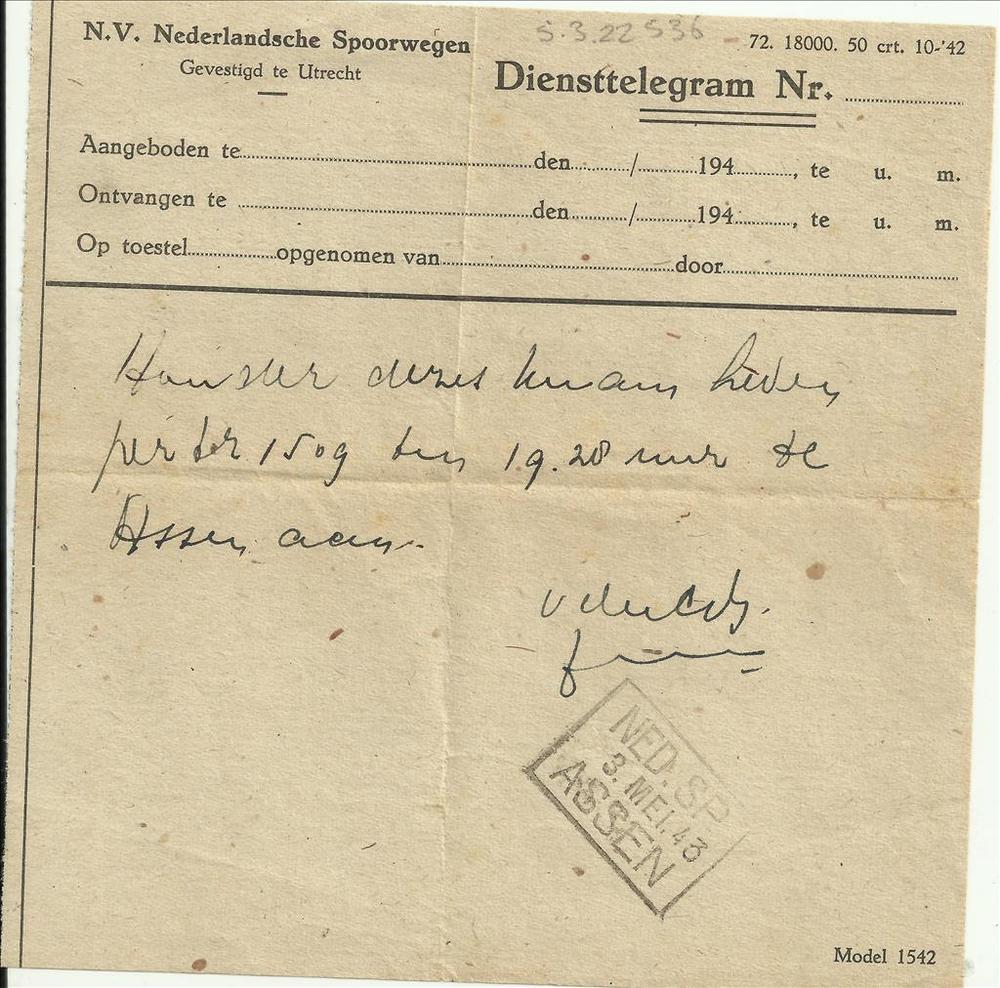 5.3.22 536
N.V. Nederlandsche Spoorwegen
72. 18000. 50 crt. 10-'42
Gevestigd te Utrecht
Diensttelegram Nr. ....................
Aangeboden te....................den........../..........194.........., te u. m.
Ontvangen te ....................den........../..........194.........., te u. m.
Op toestel....................opgenomen van....................door....................
Houster dezes kwam heden
per tr 1509 ten 19.28 uur te
Assen aan.
NED. SP
3. MEI. 43
ASSEN
Model 1542